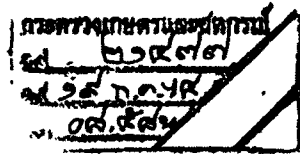 กระทรวงเกษตรและสหกรณ์
รับ ๒๑๔๓๗
วันที่ ๑๙ ก.ค. ๔๘
เวลา ๐๘.๕๘ น.